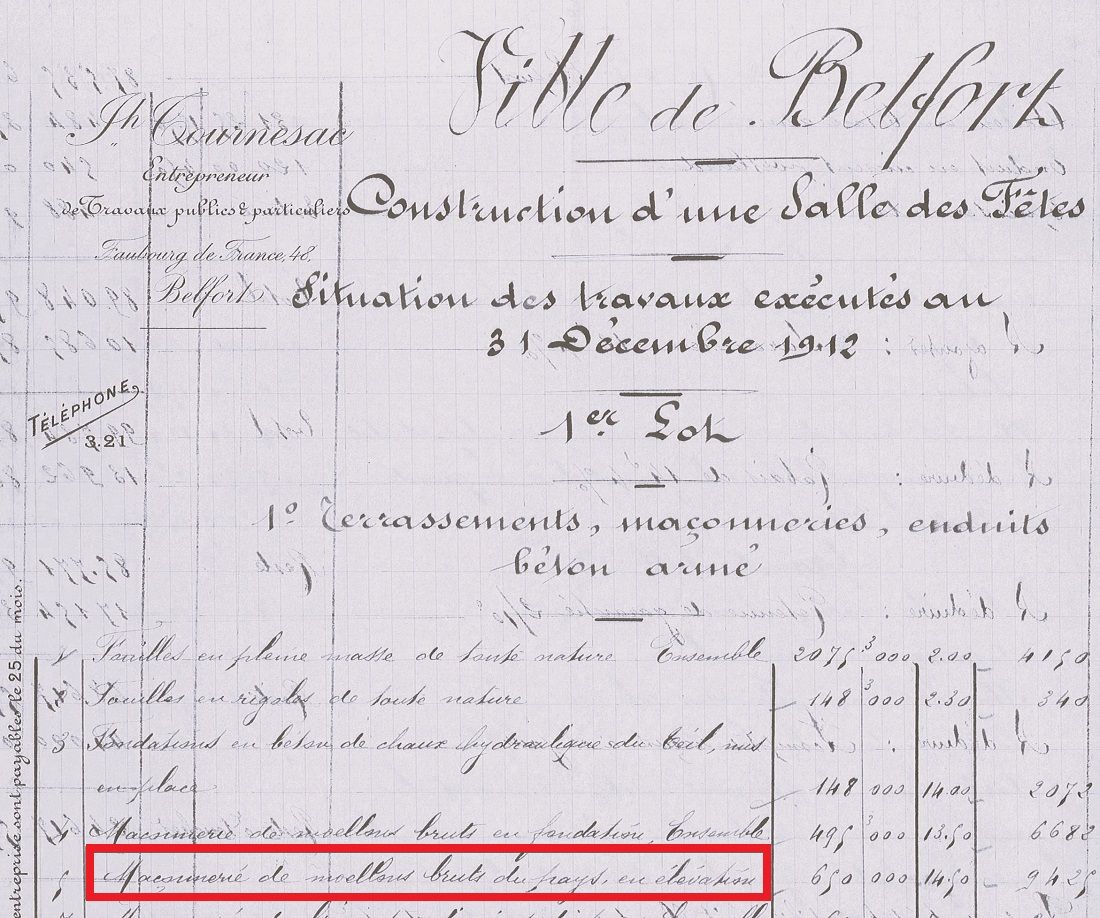 Ville de Belfort
Jh Tournesac
Entrepreneur
de Travaux publics & particuliers
Faubourg de France, 48,
Belfort
TÉLÉPHONE
3.21
Construction d'une Salle des Fêtes
Situation des travaux exécutés au
31 Décembre 1912 :
1er Lot
1° Terrassements, maçonneries, enduits
béton armé
entreprise sont payables le 25 du mois.
1 Fouilles en pleine masse de toute nature Ensemble 2075 3 000 2.00 4150
Fouilles en rigoles de toute nature 148 3 000 2.30 340
3 Fondations en béton de chaux hydraulique du Teil, mis
en place 148 000 14.00 2072
4 Maçonnerie de moellons bruts en fondation, Ensemble 495 3 000 13.50 6682
5 Maçonnerie de moellons bruts du pays, en élévation 650 000 14.50 9425